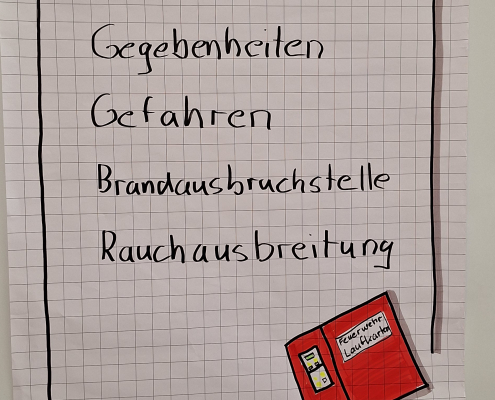 Gegebenheiten
Gefahren
Brandausbruchstelle
Rauchausbreitung
Feuerwehr
Laufkarten